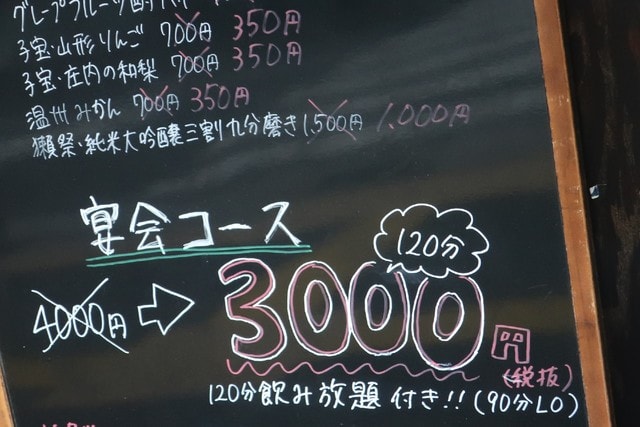 グレープフルーツ 350円
子宝・山形りんご 700円 350円
子宝・庄内の和梨 700円 350円
温州みかん 700円 350円
獺祭・純米大吟醸三割九分磨き 1,500円 1,000円
宴会コース
120分
4000円 → 3000円
(税抜)
120分飲み放題付き!!(90分LO)